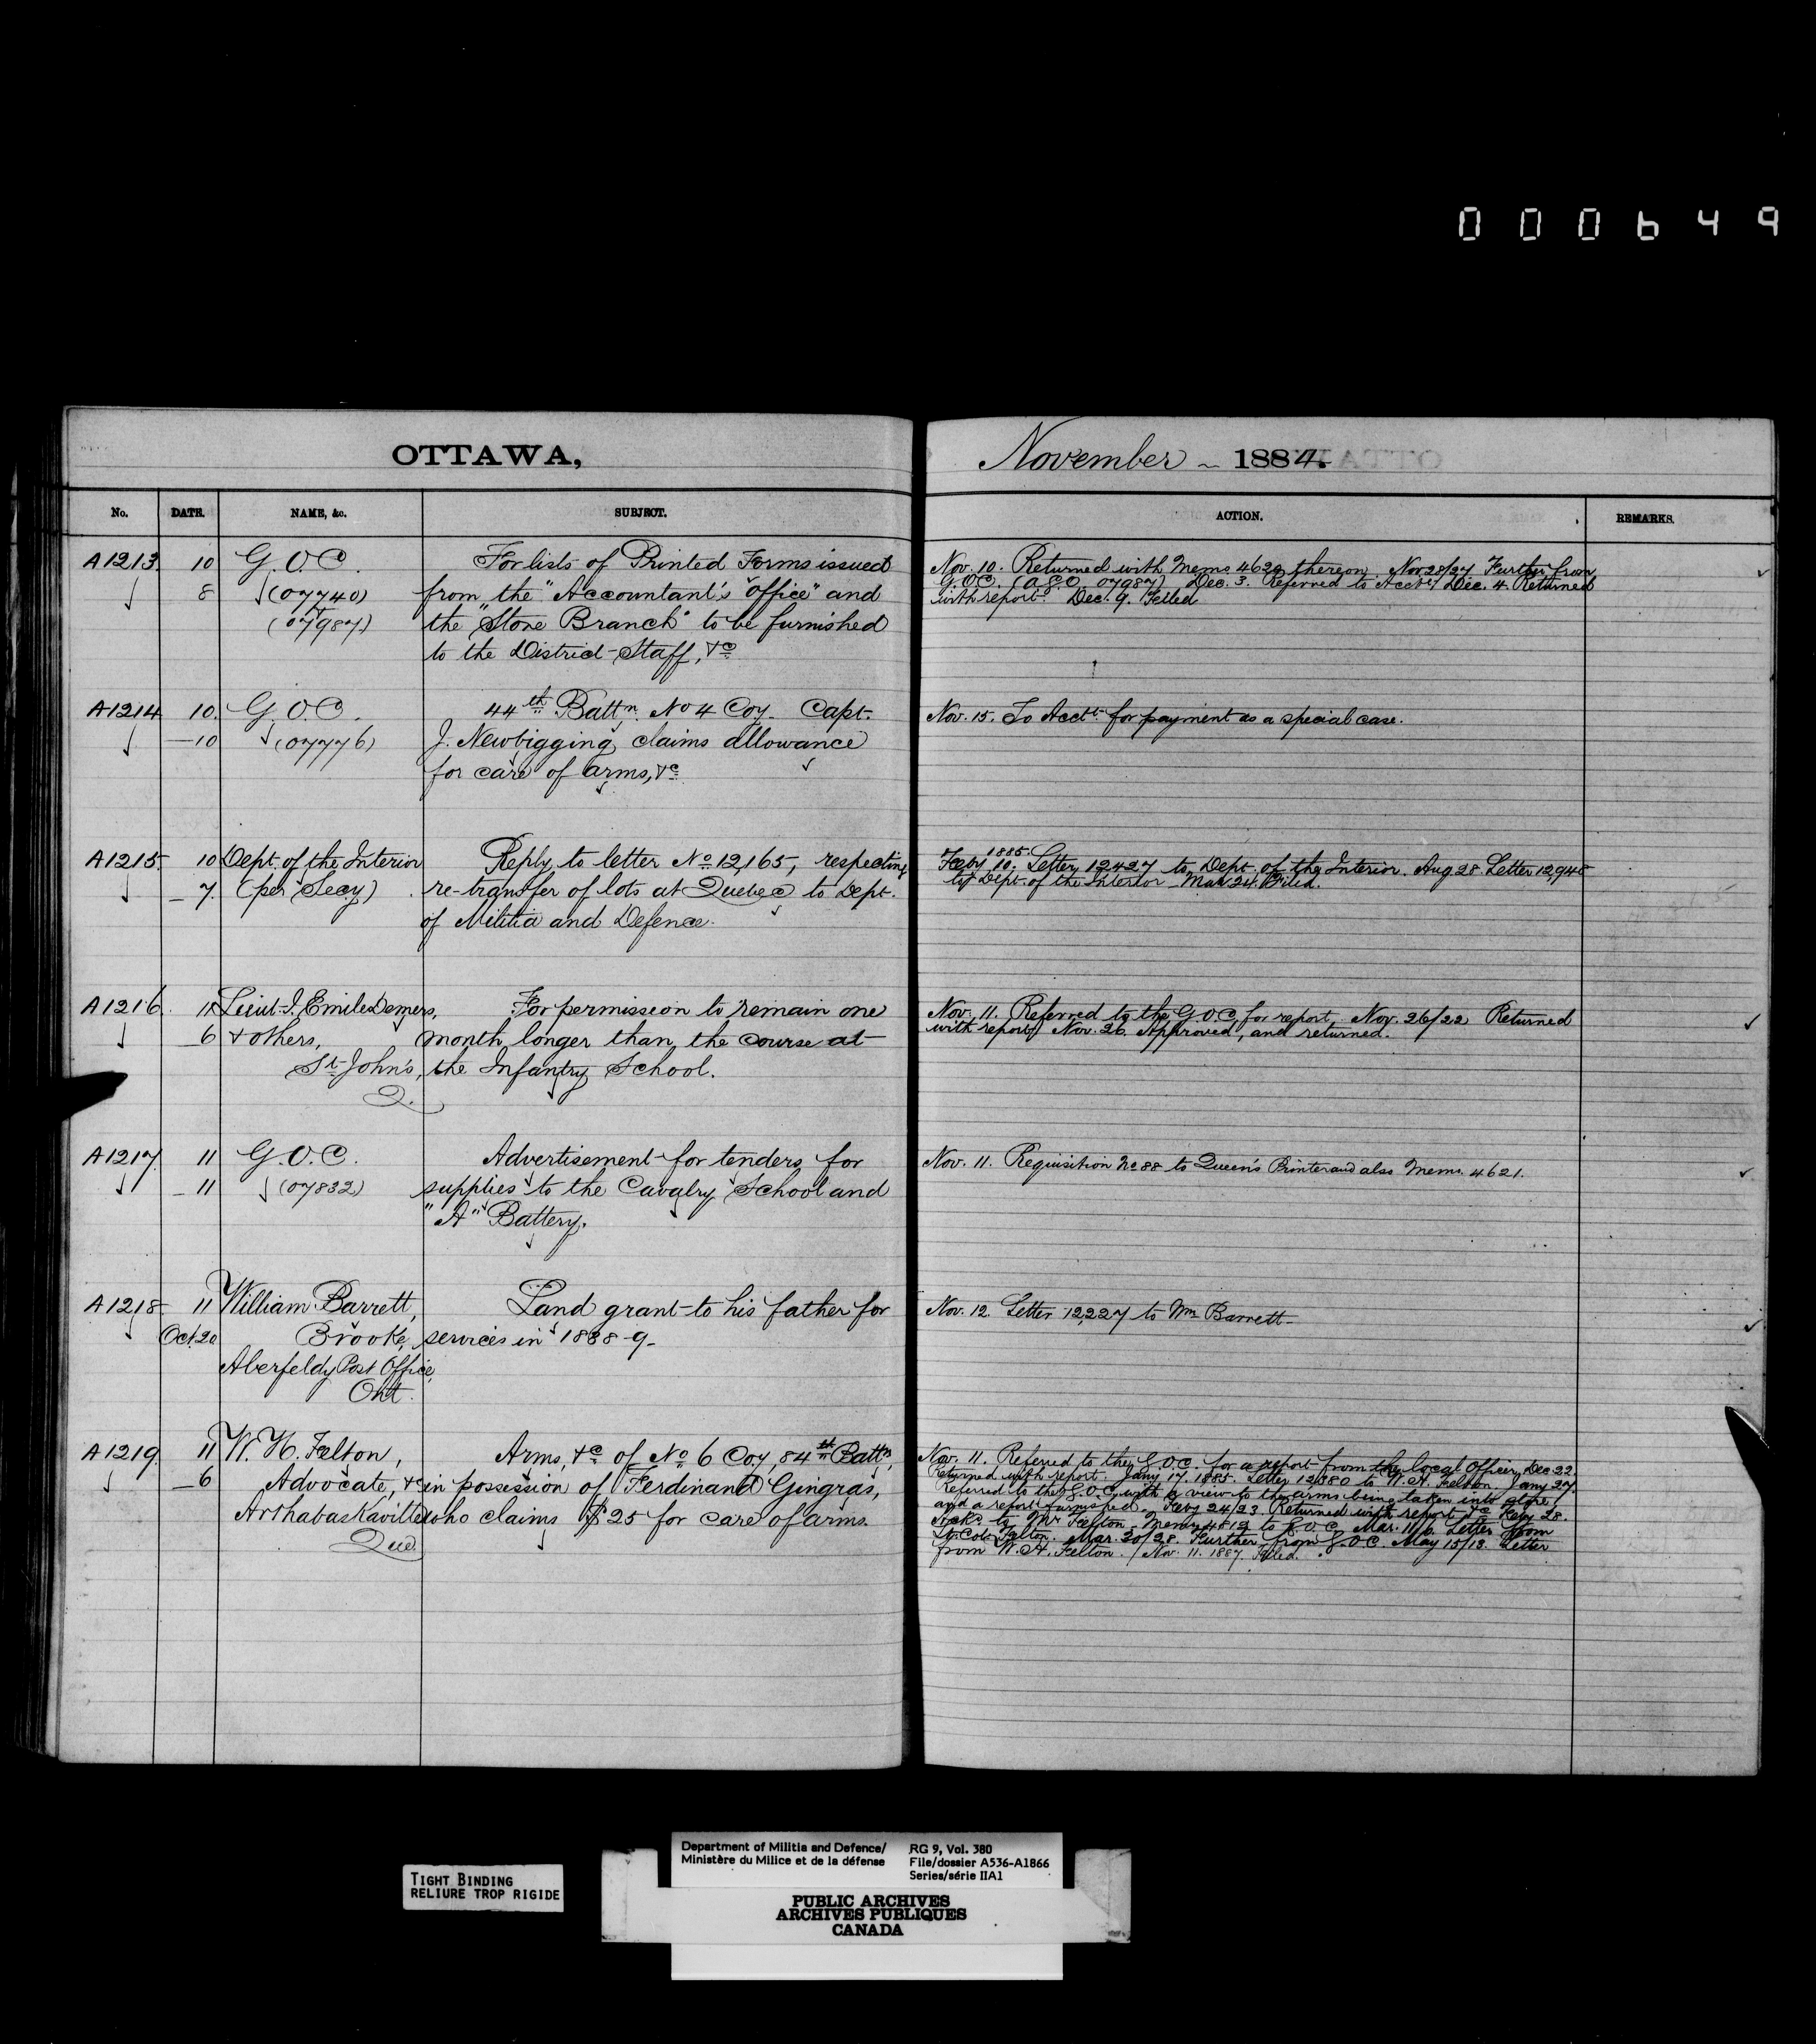 000649
OTTAWA,
November 1884.
No. DATE. NAME, &c. SUBJECT. ACTION. REMARKS.
A1213 10 G.O.C. For lists of Printed Forms issued
8 (07740) from the "Accountant's office" and
(07987) the "Store Branch" to be furnished
to the District Staff, &c
Nov. 10. Returned with Memo 4620 thereon. Nov 28/27 Further from
G.O.C. (A.G.O. 07987) Dec. 3. Referred to Acct. Dec. 4. Returned
with report. Dec. 9. Filed
A1214 10. G.O.C. 44th Battn. No 4 Coy. Capt.
10 (07776) J. Newbigging claims allowance
for care of arms, &c
Nov. 15. To Acctt. for payment as a special case.
A1215 10 Dept. of the Interior Reply to letter No 12,165, respecting
7. (per Secy) re-transfer of lots at Quebec to Dept.
of Militia and Defence.
1885.
Feby 10. Letter 12427 to Dept. of the Interior. Aug 28. Letter 12,948
to Dept. of the Interior Mar 24. Filed.
A1216 11 Lieut. J. Emile Demers, For permission to remain one
6 & others, month longer than the course at
St. John's, the Infantry School.
Q.
Nov. 11. Referred to the G.O.C. for report. Nov. 26/22 Returned
with report. Nov. 26. Approved, and returned.
A1217 11 G.O.C. Advertisement for tenders for
11 (07832) supplies to the Cavalry School and
"A" Battery.
Nov. 11. Requisition No 88 to Queen's Printer and also Memo. 4621.
A1218 11 William Barrett, Land grant to his father for
Oct. 20 Brooke, services in 1838-9.
Aberfeldy Post Office,
Ont.
Nov. 12. Letter 12,227 to Wm Barrett
A1219 11 W. H. Felton, Arms, &c of No 6 Coy, 84th Battn,
6 Advocate, &c in possession of Ferdinand Gingras,
Arthabaskaville who claims $25 for care of arms.
Que.
Nov. 11. Referred to the G.O.C. for a report from the local Officer, Dec 22.
Returned with report. Jany 17. 1885. Letter 12,380 to W. H. Felton Jany 27.
Referred to the G.O.C. with a view to the arms being taken into store,
and a report furnished. Feby 24/23 Returned with report &c Feby 28.
to Mr Felton. Memo 4812 to G.O.C. Mar. 11/6. Letter from
Lt. Col. Felton. Mar. 30/28. Further from G.O.C. May 15/13. Letter
from W. H. Felton. Nov. 11. 1887. Filed.
TIGHT BINDING
RELIURE TROP RIGIDE
Department of Militia and Defence/
Ministère du Milice et de la défense
RG 9, Vol. 380
File/dossier A536-A1866
Series/série IIA1
PUBLIC ARCHIVES
ARCHIVES PUBLIQUES
CANADA